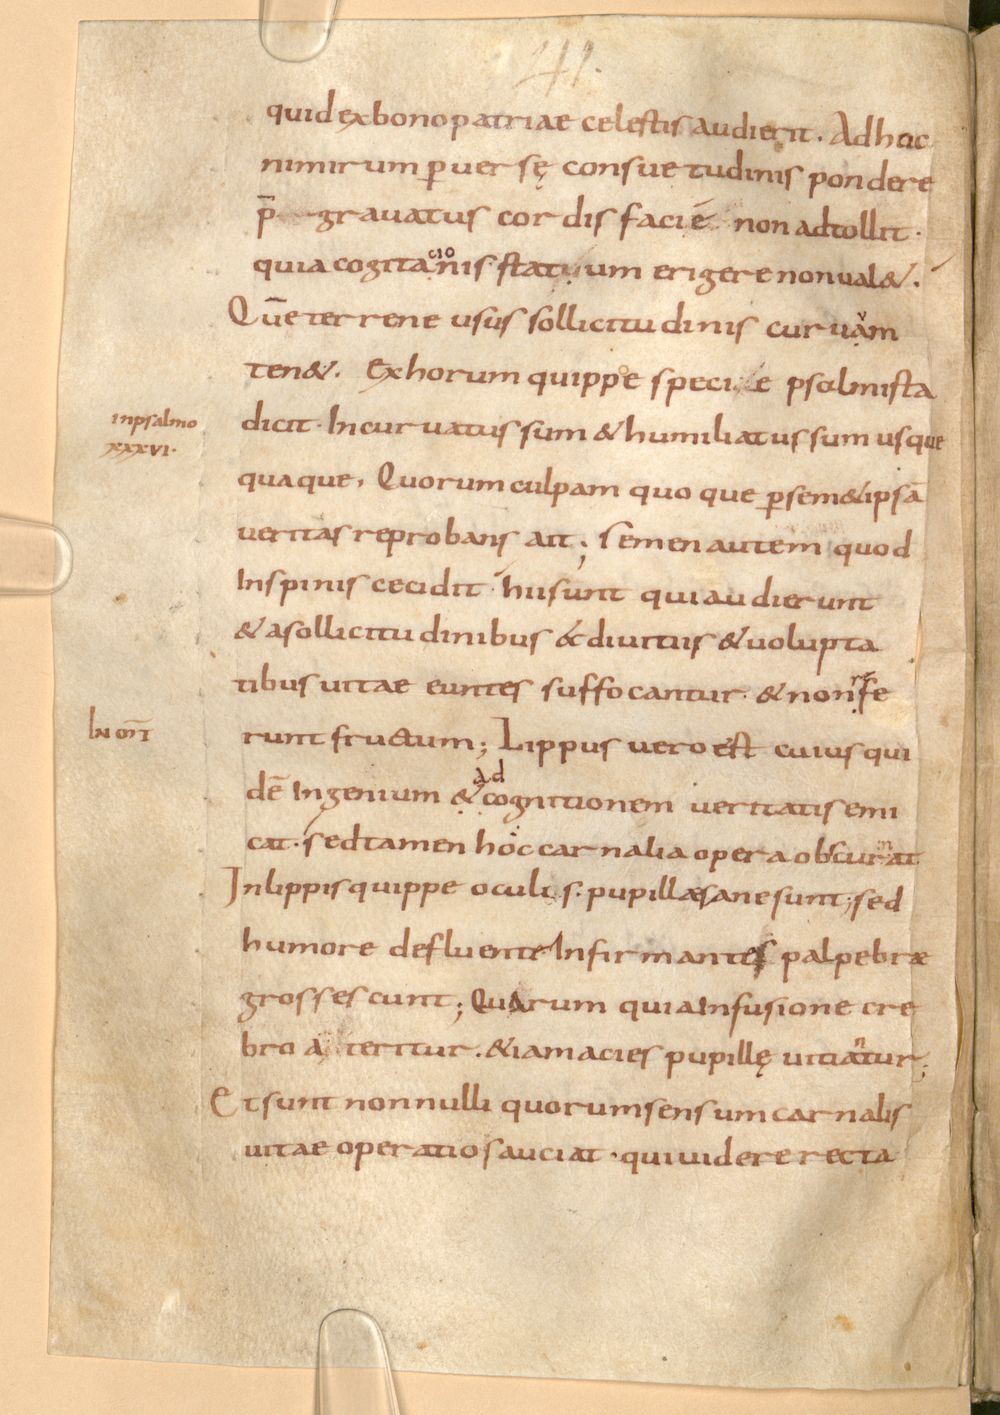 41.
quid ex bono patriae celestis audierit. Ad hęc
nimirum puersę consuetudinis pondere
p̄grauatus cordis faciē non adtollit.
quia cogitacionis statum erigere non ual&.
Quē terrene usus sollicitudinis curuām
ten&. Ex horum quippe specie psalmista
inpsalmo
xxxvi.
dicit. Incuruatus sum & humiliatus sum usque
quaque, Quorum culpam quoque p sem&ipsā
ueritas reprobans ait; semen autem quod
In spinis cecidit. hii sunt qui audierunt
& a sollicitudinibus & diuitiis & uolupta
tibus uitae euntes suffocantur. & non refe
runt fructum; Lippus uero est cuius qui
dē Ingenium ad cognitionem ueritatis emi
cat. sed tamen hoc carnalia opera obscurant
In lippis quippe oculis. pupillae sane sunt; sed
humore defluente Infirmantes palpebrae
grossescunt; Quarum quia Infusione cre
bro a teritur. &iam acies pupillę uitiatur;
Et sunt nonnulli quorum sensum carnalis
uitae operatio sauciat. qui uidere recta